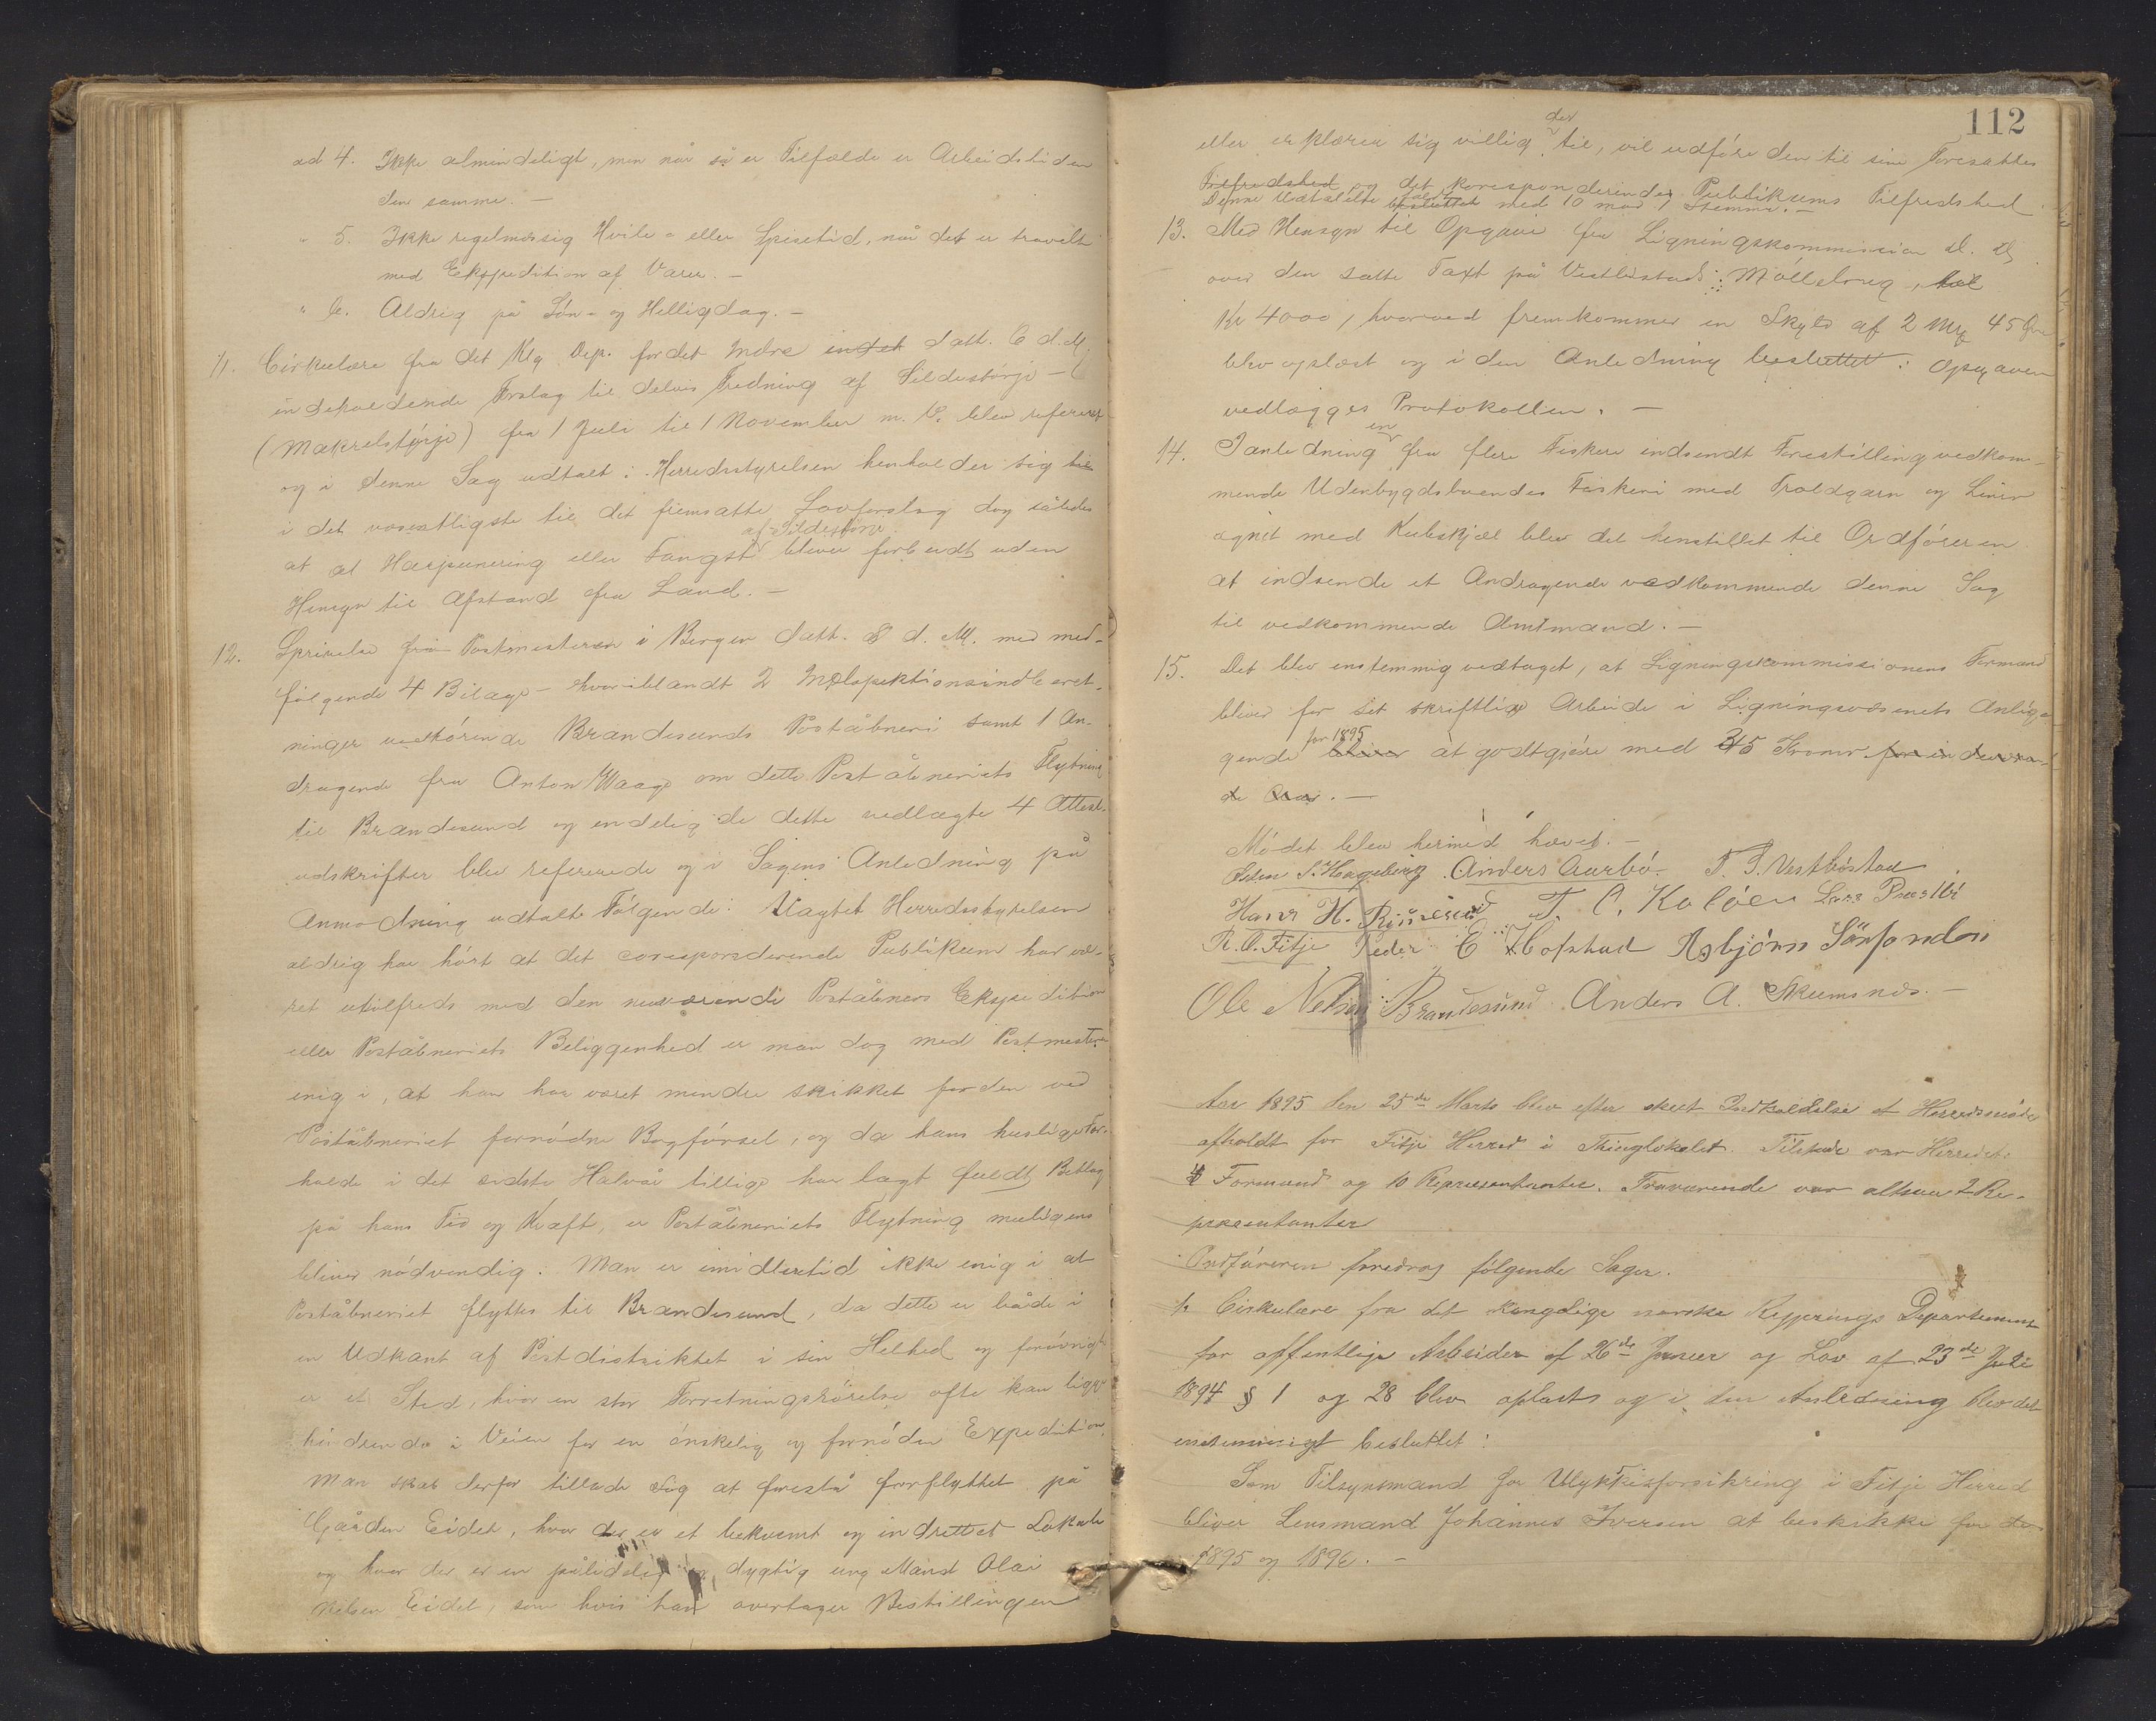 ad 4. Ikke almindeligt, men når så er Tilfælde er Arbeidstiden
den samme. -
" 5. Ikke regelmæssig Hvile- eller Spisetid, når det er travelt
med Ekspedition af Varer. -
" 6. Aldrig på Søn- og Helligdag. -
11. Cirkulære fra det Klg Dep. for det Indre indet datt. 6 d.M.
indeholdende Forslag til delvis Fredning af Sildestørje - (
(Makrelstørje) fra 1 Juli til 1 November m. V. blev refereret
og i denne Sag udtalt: Herredsstyrelsen henholder sig til
i det væsentligste til det fremsatte Lovforslag dog således
af Sildestørje
at al Harpunering eller Fangst bliver forbudt uden
Hensyn til Afstand fra Land. -
12. Skrivelse fra Postmesteren i Bergen datt. 8 d. M. med med-
følgende 4 Bilage - hvoriblandt 2 Inspektionsindberet-
ninger vedkørende Brandesunds Poståbneri samt 1 An-
dragende fra Anton Waage om dette Poståbneriets Flytning
til Brandesund og endelig de dette vedlagte 4 Attest-
udskrifter blev refererede og i Sagens Anledning på
Anmodning udtalt Følgende: Uagtet Herredsstyrelsen
aldrig har hørt at det coresponderende Publikum har væ-
ret utilfreds med den nuværende Poståbners Ekspedition
eller Poståbneriets Beliggenhed er man dog med Postmesteren
enig i, at han har været mindre skikket for den ved
Poståbneriet fornødne Bogførsel, og da hans huslige For-
holde i det sidste Halvår tillige har lagt fuldt Beslag
på hans Tid og Kraft, er Poståbneriets Flytning muligens
bliver nødvendig. Man er imidlertid ikke enig i at
Poståbneriet flyttes til Brandesund, da dette er både i
en Udkant af Postdistriktet i sin Helhed og forøvrigt
er et Sted, hvor en stor Forretningsrørelse ofte kan ligge
hindrende i Veien for en ønskelig og fornøden Expedition.
Man skal derfor tillade sig at foreslå forflyttet på
Gården Eidet, hvor der er et bekvemt og indrettet Lokale
og hvor der er en pålidelig og dygtig ung Mand Olai
Nelsen Eidet, som hvis han overtager Bestillingen
112
der
eller erklærer sig villig til, vil udføre den til sine Foresattes
Tilfredshed og det korresponderende Publikums Tilfredshed
Denne Udtalelse besluttet med 10 mod 1 Stemme. -
13. Med Hensyn til Opgave fra Ligningskommission d. d.
over den satte Taxt på Vestbøstads Møllebrug,
Kr 4000, hvorved fremkommer en Skyld af 2 Mrk 45 Øre
blev oplæst og i den Anledning besluttet: Opgaven
vedlægges Protokollen. -
en
14. I anledning fra flere Fiskere indsendt Forestilling vedkom-
mende Udenbygdsboendes Fiskeri med Troldgarn og Liner
agnet med Kubskjæl blev det henstillet til Ordføreren
at indsende et Andragende vedkommende denne Sag
til vedkommende Amtmand. -
15. Det blev enstemmig vedtaget, at Ligningskommissionens Formand
bliver for det skriftlige Arbeide i Ligningsvæsenets Anlig-
for 1895
gende bliver at godtgjøre med 35 Kroner for indeværen-
de Aar. -
Mødet blev hermed hævet. -
Østen S. Hageberg Anders Aarbø. T. T. Vestbøstad
Hans H. Rimmereid T. C. Kaløen Lars Præstbø
R. O. Fitje Peder E Hofstad Asbjørn Sørfonden
Ole Nelsen Brandesund Anders A. Skumsnes. -
Aar 1895 den 25de Marts blev efter skeet Indkaldelse et Herredsmøde
afholdt for Fitje Herred i Thinglokalet. Tilstede var Herredets
4 Formænd og 10 Repræsentanter. Fraværende var altsaa 2 Re-
præsentanter
Ordføreren foredrog følgende Sager.
1. Cirkulære fra det kongelige norske Regjerings Departement
for offentlige Arbeider af 26de Januar og Lov af 23de Juli
1894 § 1 og 28 blev oplæst og i den Anledning blev det
enstemmigt besluttet:
Som Tilsynsmand for Ulykkesforsikring i Fitje Herred
bliver Lensmand Johannes Iversen at beskikke for de
1895 og 1896. -